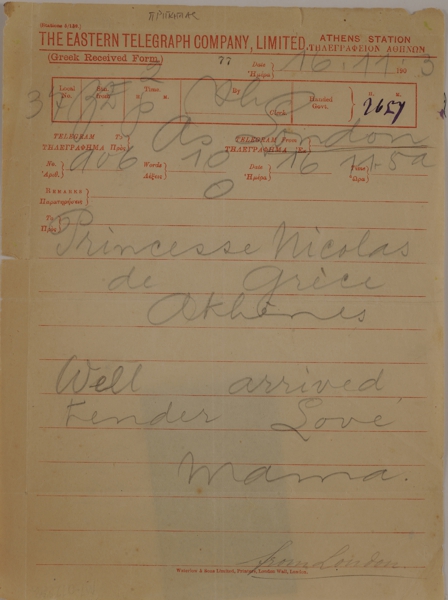 ΠΡΙΓΚΙΠΑΣ
THE EASTERN TELEGRAPH COMPANY, LIMITED. ATHENS' STATION
ΤΗΛΕΓΡΑΦΕΙΟΝ ΑΘΗΝΩΝ
(Greek Received Form.) 77 Date 16.11 1903
Ἡμέρα
Local No. Time. By Clerk Handed Govt. 2657
TELEGRAM To As TELEGRAM From London
ΤΗΛΕΓΡΑΦΗΜΑ Πρὸς ΤΗΛΕΓΡΑΦΗΜΑ Ἐκ
No. 906 Words 10 Date 16 Time 11.5a
Ἀριθ. Λέξεις Ἡμέρα Ὥρα
REMARKS 0
Παρατηρήσεις
To
Πρὸς
Princesse Nicolas
de Grèce
Athènes
Well arrived
Tender Love
Mama.
from London.
Waterlow & Sons Limited, Printers, London Wall, London.